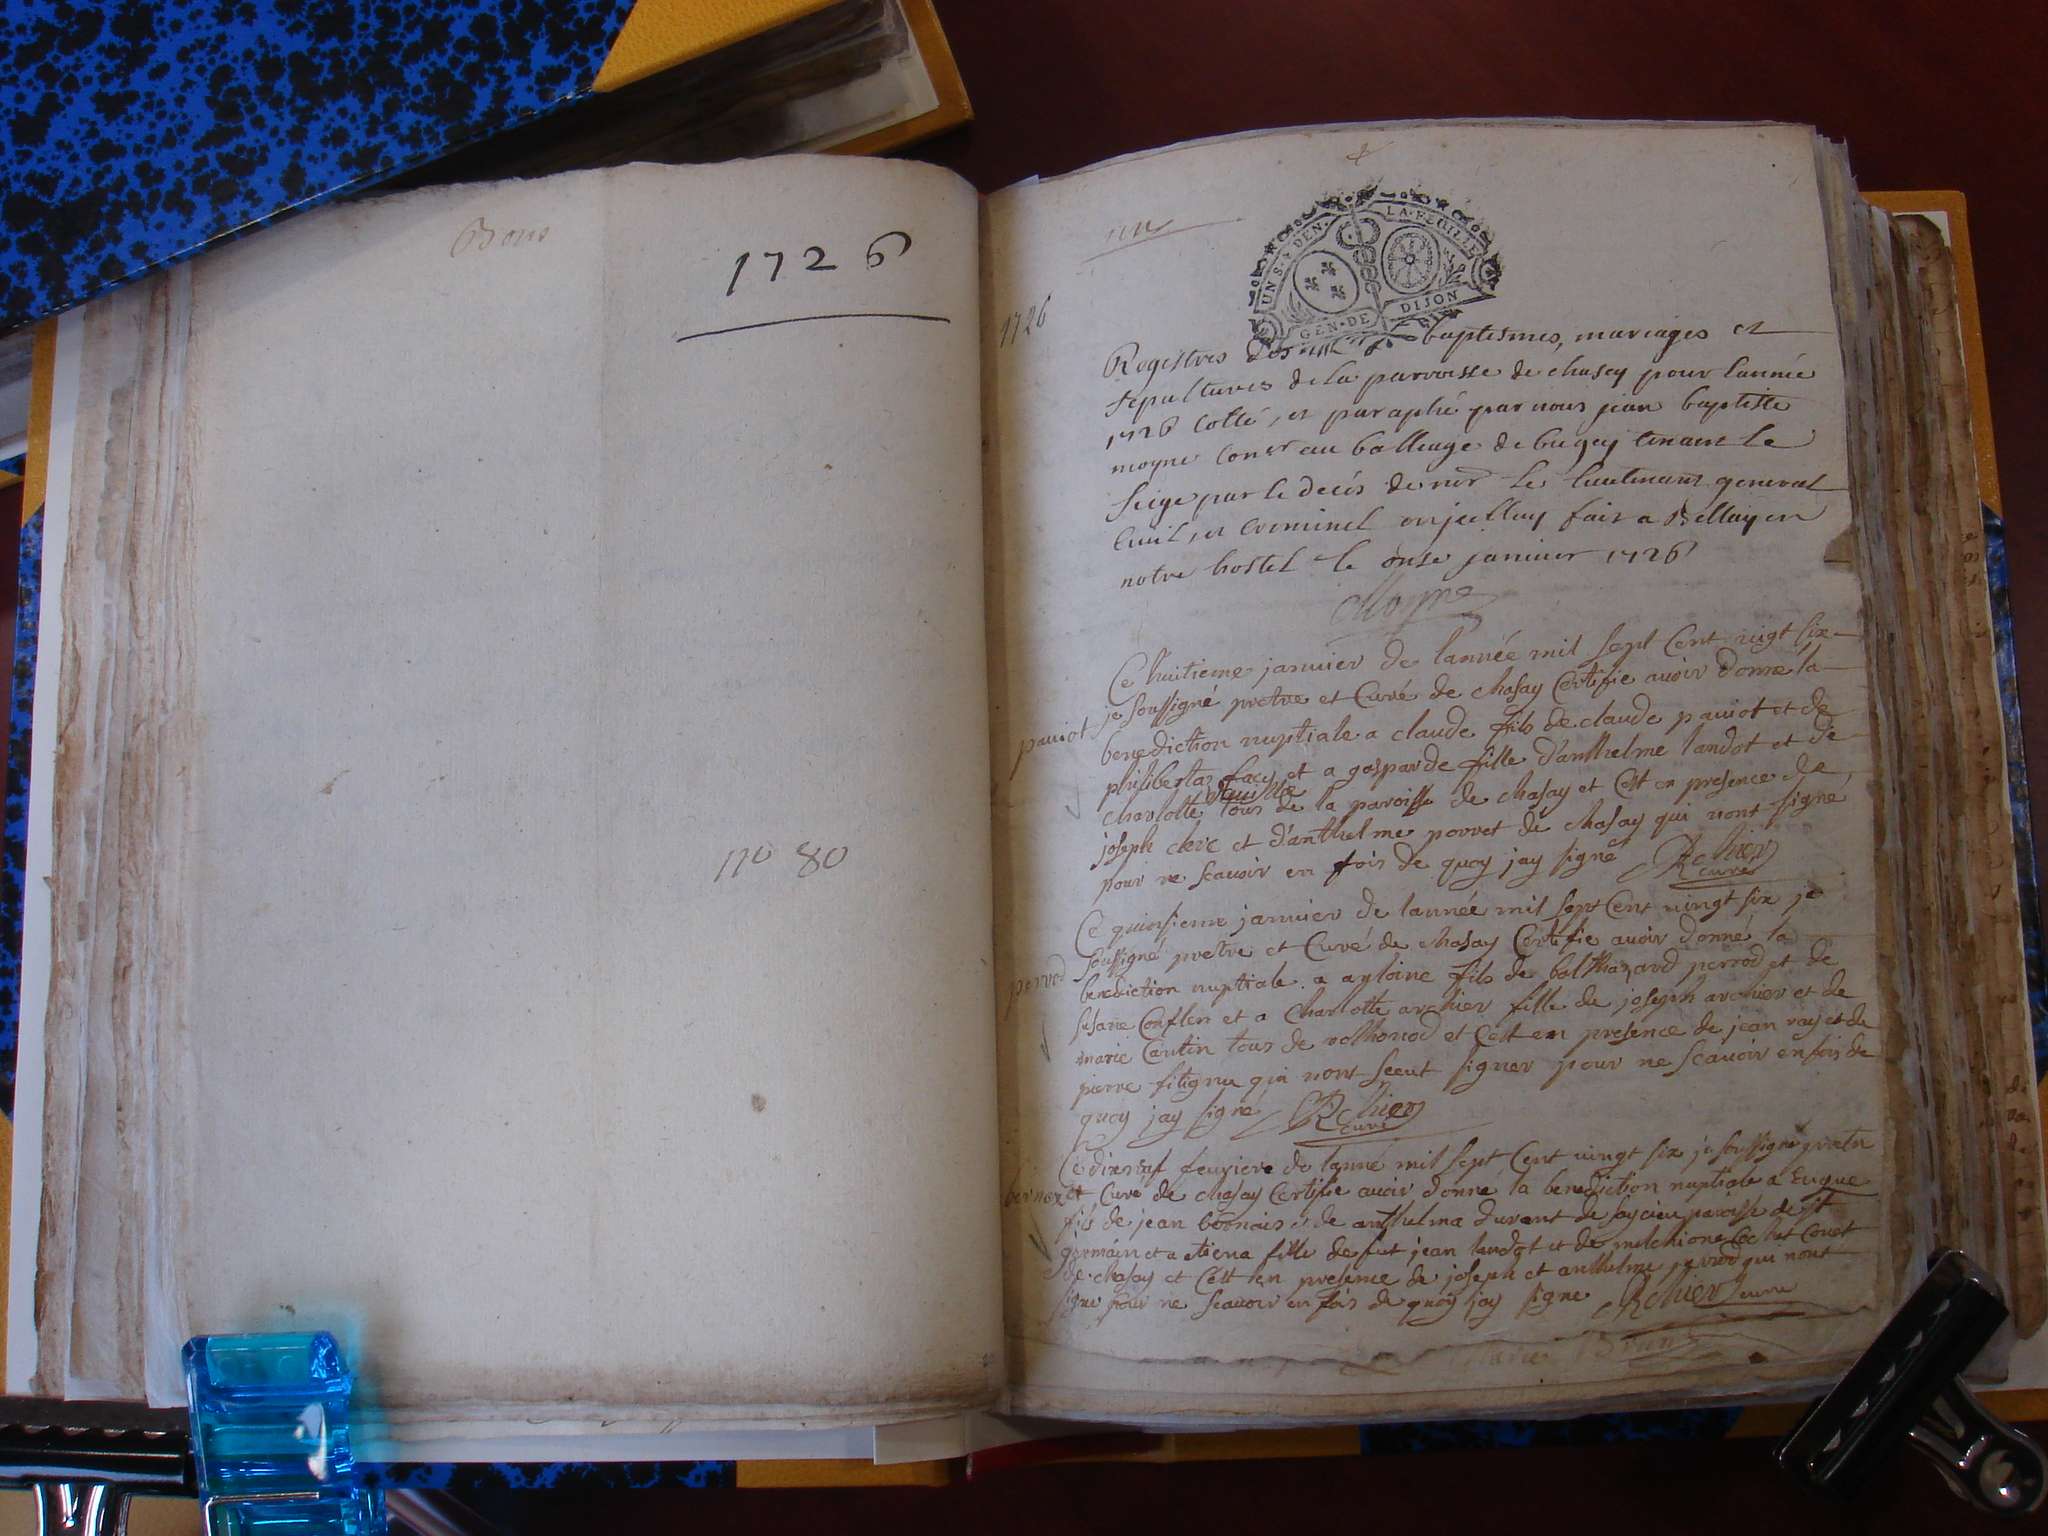 Bons
1726
no 80
1726
une
UN S. 4 DEN. LA FEUILLE
GEN. DE DIJON
Registres des baptesmes, mariages et
sepultures de la parroisse de chasey pour lannée
1726 Cotté, et paraphé par nous jean baptiste
moyne Conser au balleage de bugey tenant le
siege par le decés de mr le lieutenant general
Civil, et criminel en jcelluy fait a Bellay en
notre hostel le onse janvier 1726
Moyne
paviot
Ce huitieme janvier de lannée mil sept Cent vigt six
je soussigné pretre et Curé de chasay Certifie avoir donné la
benediction nuptiale a claude fils de claude paviot et de
philiberta facy et a gasparde fille d'anthelme landot et de
charlotte tous de la paroisse de chasay et Cest en presence de
joseph clerc et d'anthelme porret de chasay qui nont signé
pour ne scavoir en fois de quoy jay signé Rchier
curé
perrod
Ce quinsieme janvier de lannée mil sept Cent vingt six je
soussigné pretre et Curé de chasay Certifie avoir donné la
benediction nuptiale a antoine fils de balthazard perrod et de
susane Conflen et a Charlotte archier fille de joseph archier et de
marie Cantin tous de rothonod et Cest en presence de jean ray et de
pierre fitignu qui nont sceut signer pour ne scavoir en fois de
quoy jay signé Rchier
curé
Ce dixneuf feuriere de lanné mil sept Cent vingt six je soussigné pretre
et Curé de chasay Certifie avoir donné la benediction nuptiale a Eugue
fils de jean bornais et de anthelma durant de paroisse de st
germain et a etiena fille de fut jean landot et de melchione Cochet Conet
de chasay et Cest en presence de joseph et anthelme perrod qui nont
signe pour ne scavoir en fois de quoy jay signe Rchier curé